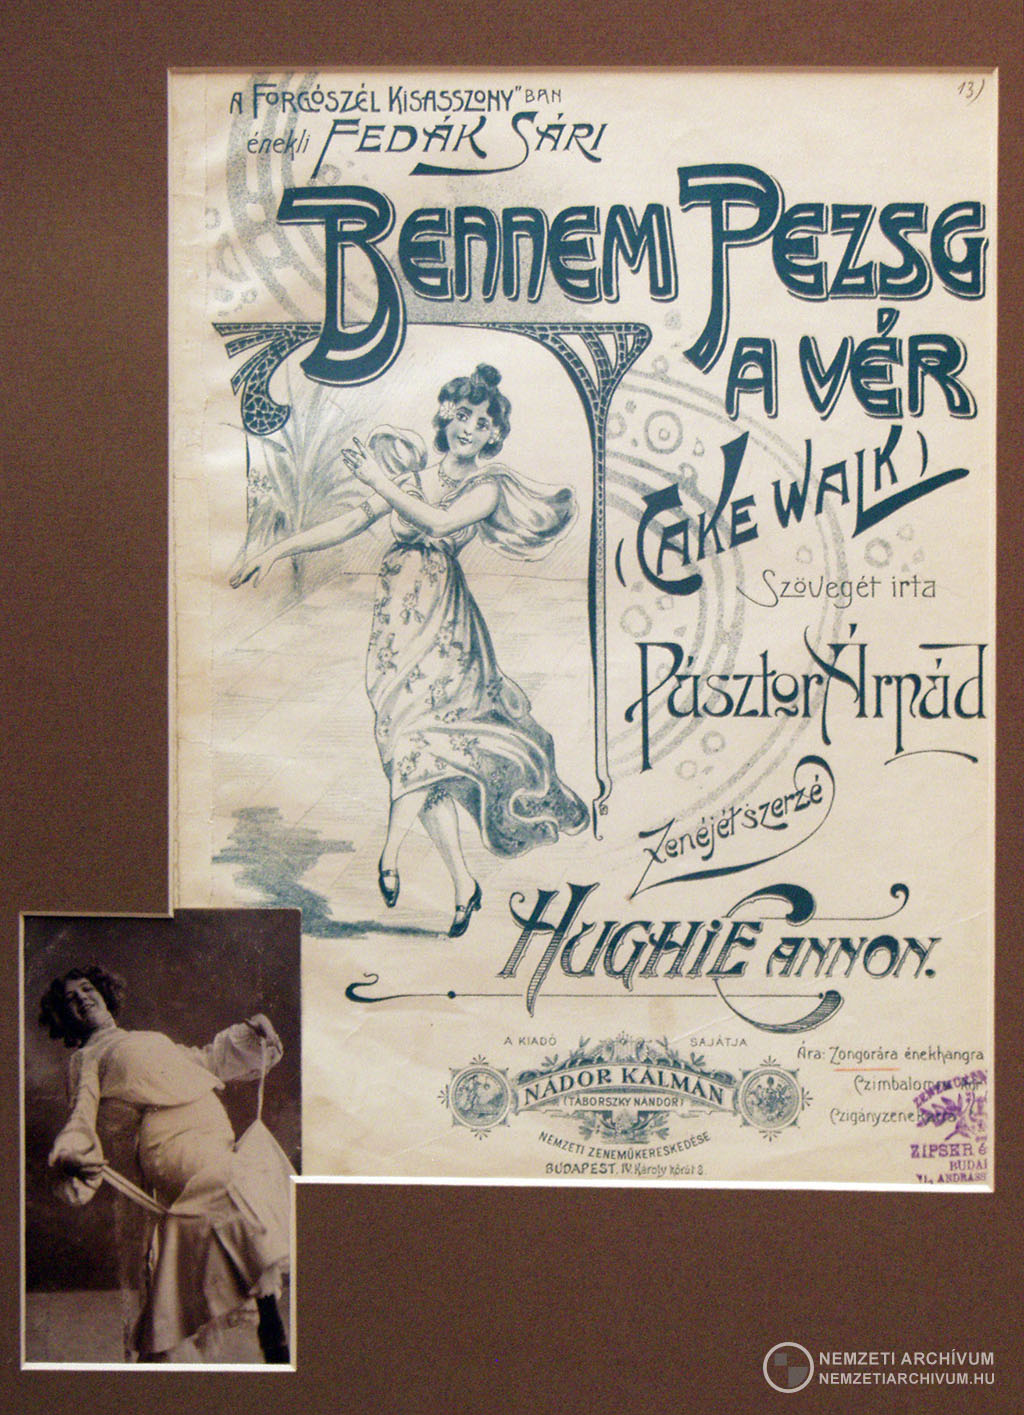 A FORGÓSZÉL KISASSZONY"BAN
13)
énekli FEDÁK SÁRI
BENNEM PEZSG
A VÉR
(CAKE WALK)
Szövegét irta
Pásztor Árpád
Zenéjét szerzé
HUGHIE CANNON.
A KIADÓ SAJÁTJA
NÁDOR KÁLMÁN
(TÁBORSZKY NÁNDOR)
NEMZETI ZENEMŰKERESKEDÉSE
BUDAPEST, IV. Károly körút 8.
Ára: Zongorára énekhangra
Czimbalomra
Czigányzenekarra
ZIPSER é
BUDA
VI., ANDRÁSS
NEMZETI ARCHÍVUM
NEMZETIARCHIVUM.HU